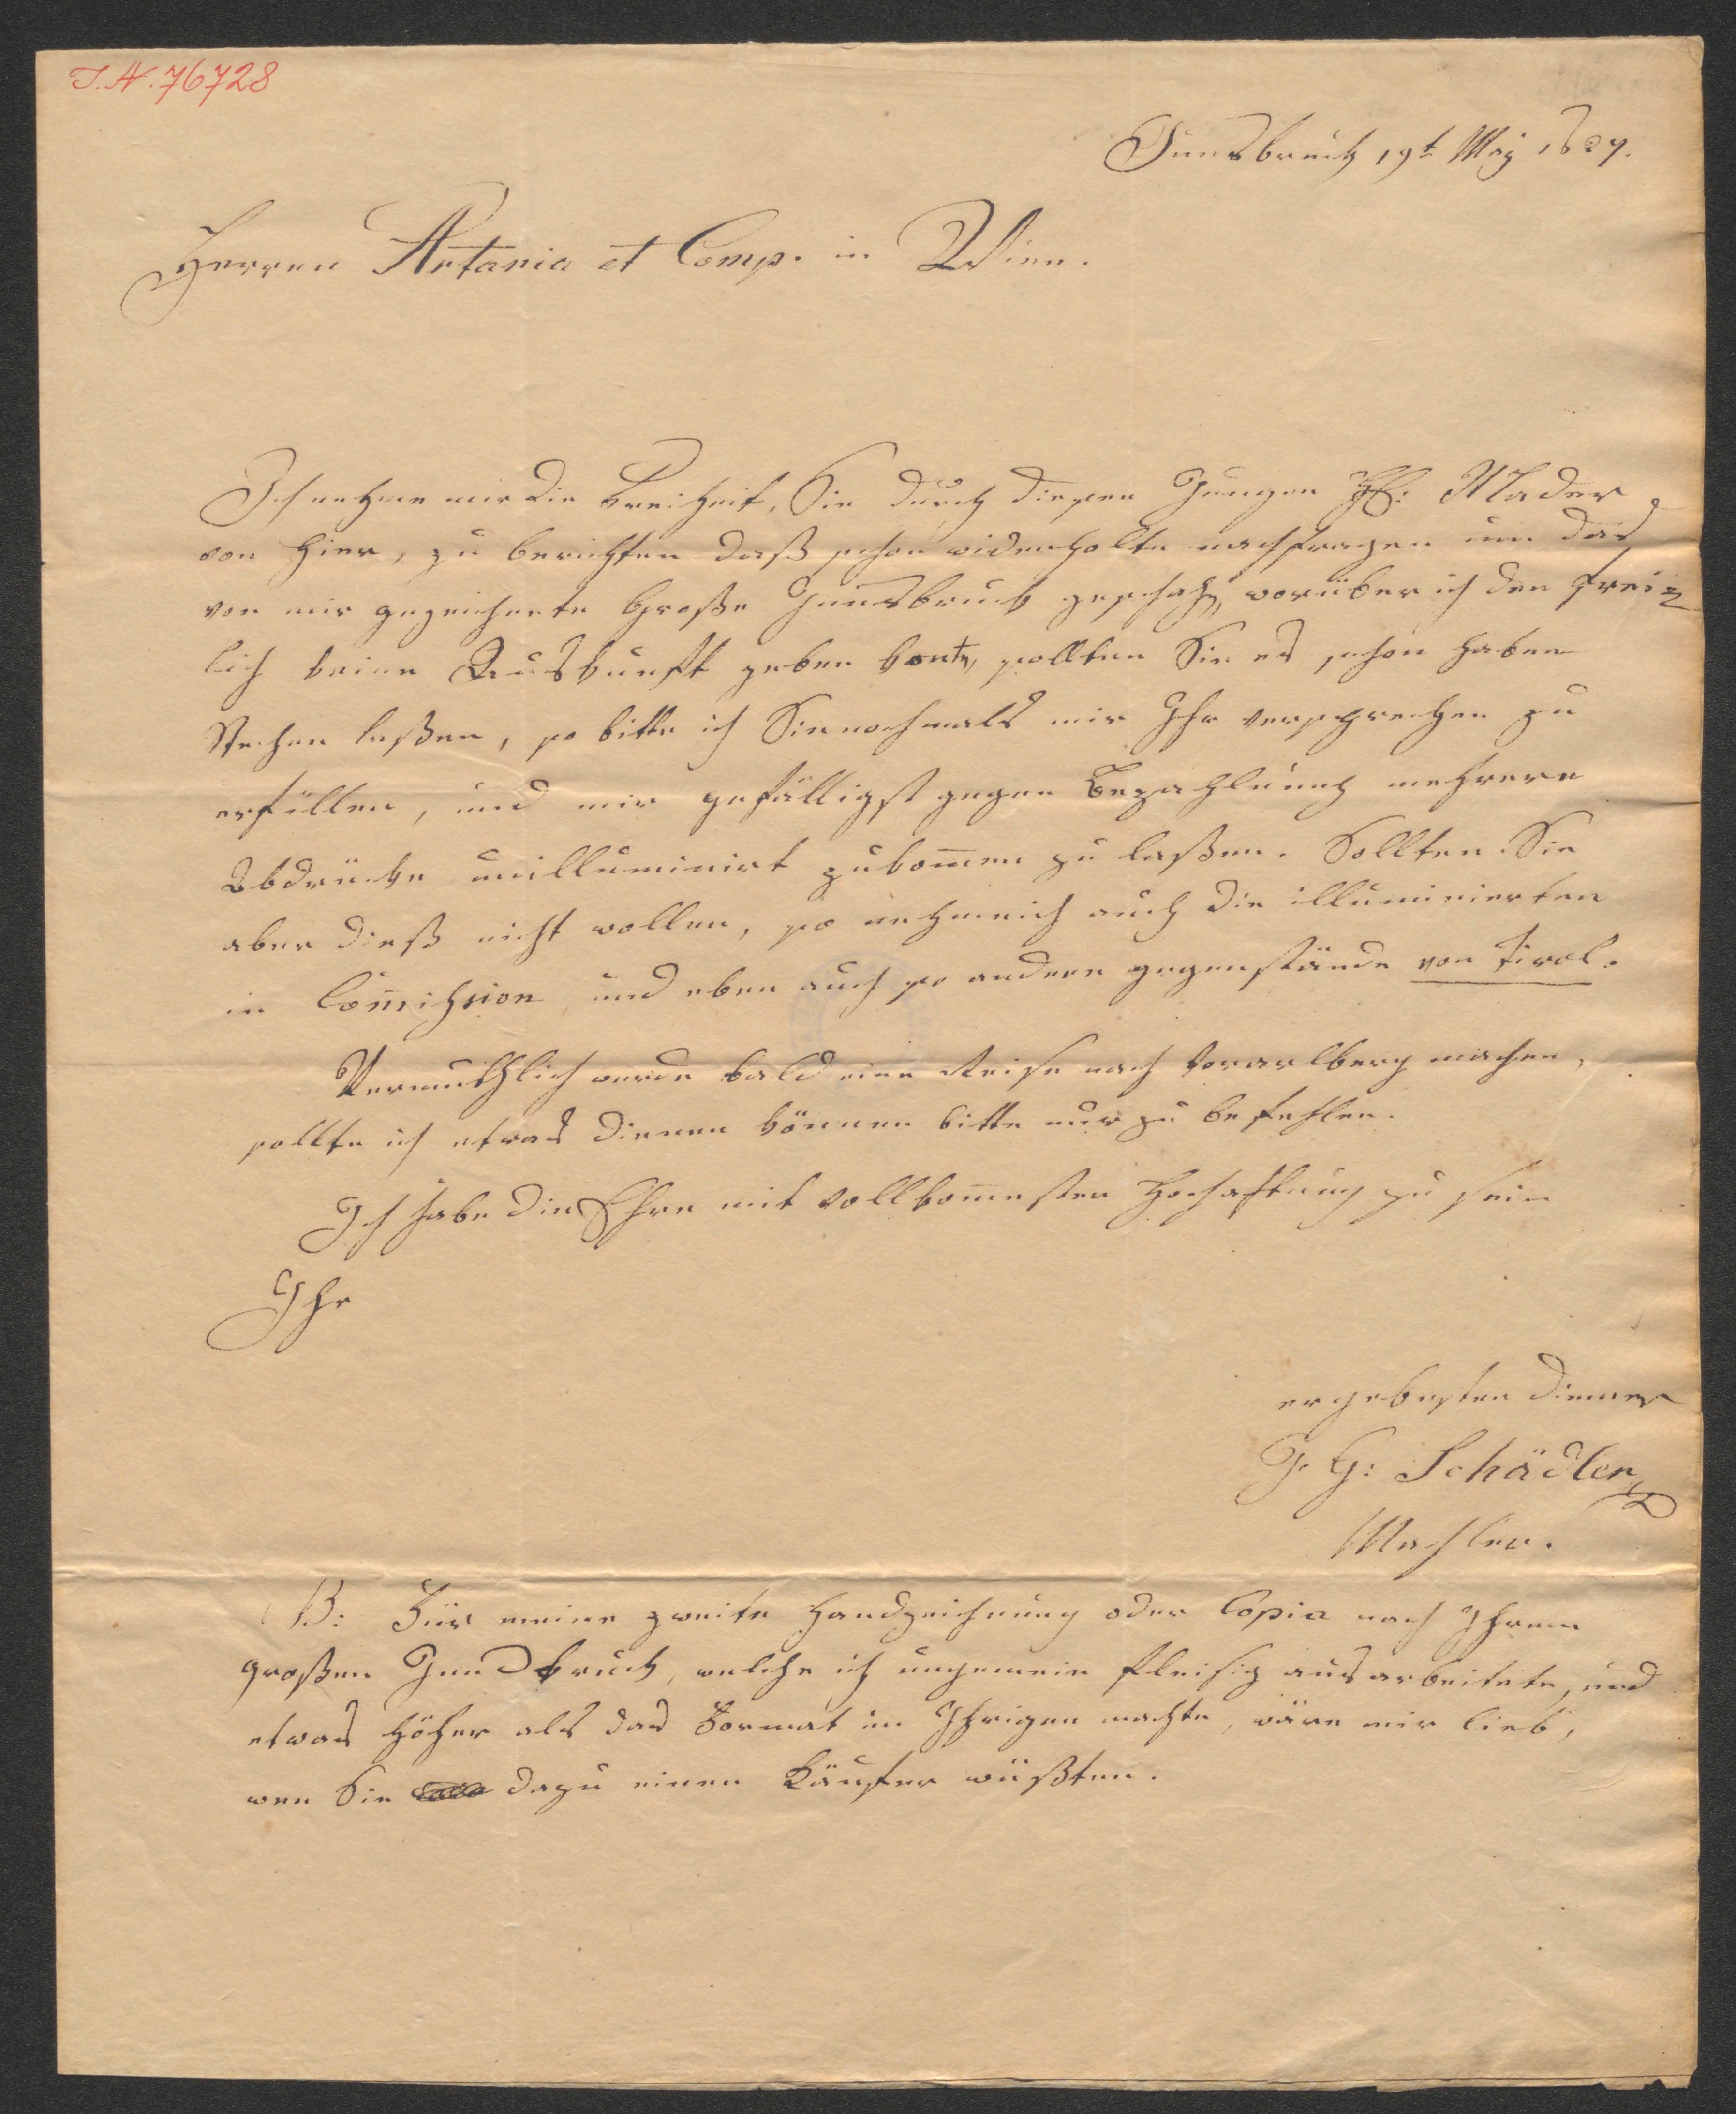 I.N. 76728
Innsbruck 19t. May 1827.
Herren Artaria et Comp. in Wien.
Ich nehme mir die Freiheit, Sie durch diesen Jungen H: Mader
von hier, zu berichten daß schon widerholte nachfragen um das
von mir gezeichnete Große Innsbruck geschah, worüber ich den frei=
lich keine Auskunft geben konte, sollten Sie es schon haben
Stechen laßen, so bitte ich Sie nochmals mir Ihr versprechen zu
erfüllen, und mir gefälligst gegen Bezahlung mehrere
Abdrücke unilluminirt zukom̄en zu laßen. Sollten Sie
aber dieß nicht wollen, so nehme ich auch die illuminierten
in Com̄ihsion, und eben auch so andere gegenstände von Tirol.
Vermuthlich werde bald eine Reise nach Vorarlberg machen,
sollte ich etwas dienen können bitte nur zu befehlen.
Ich habe die Ehre mit vollkom̄esten Hochachtung zu sein
Ihr
ergebesten diener
J. G: Schädler
Mahler.
NB: Für meine zweite Handzeichnung oder Copia nach Ihrem
großen Innsbruck, welche ich ungemein fleisig ausarbeitete, und
etwas höher als das Format im Ihrigen machte, wäre mir lieb,
wen Sie dazu einen Käufer wüßten.